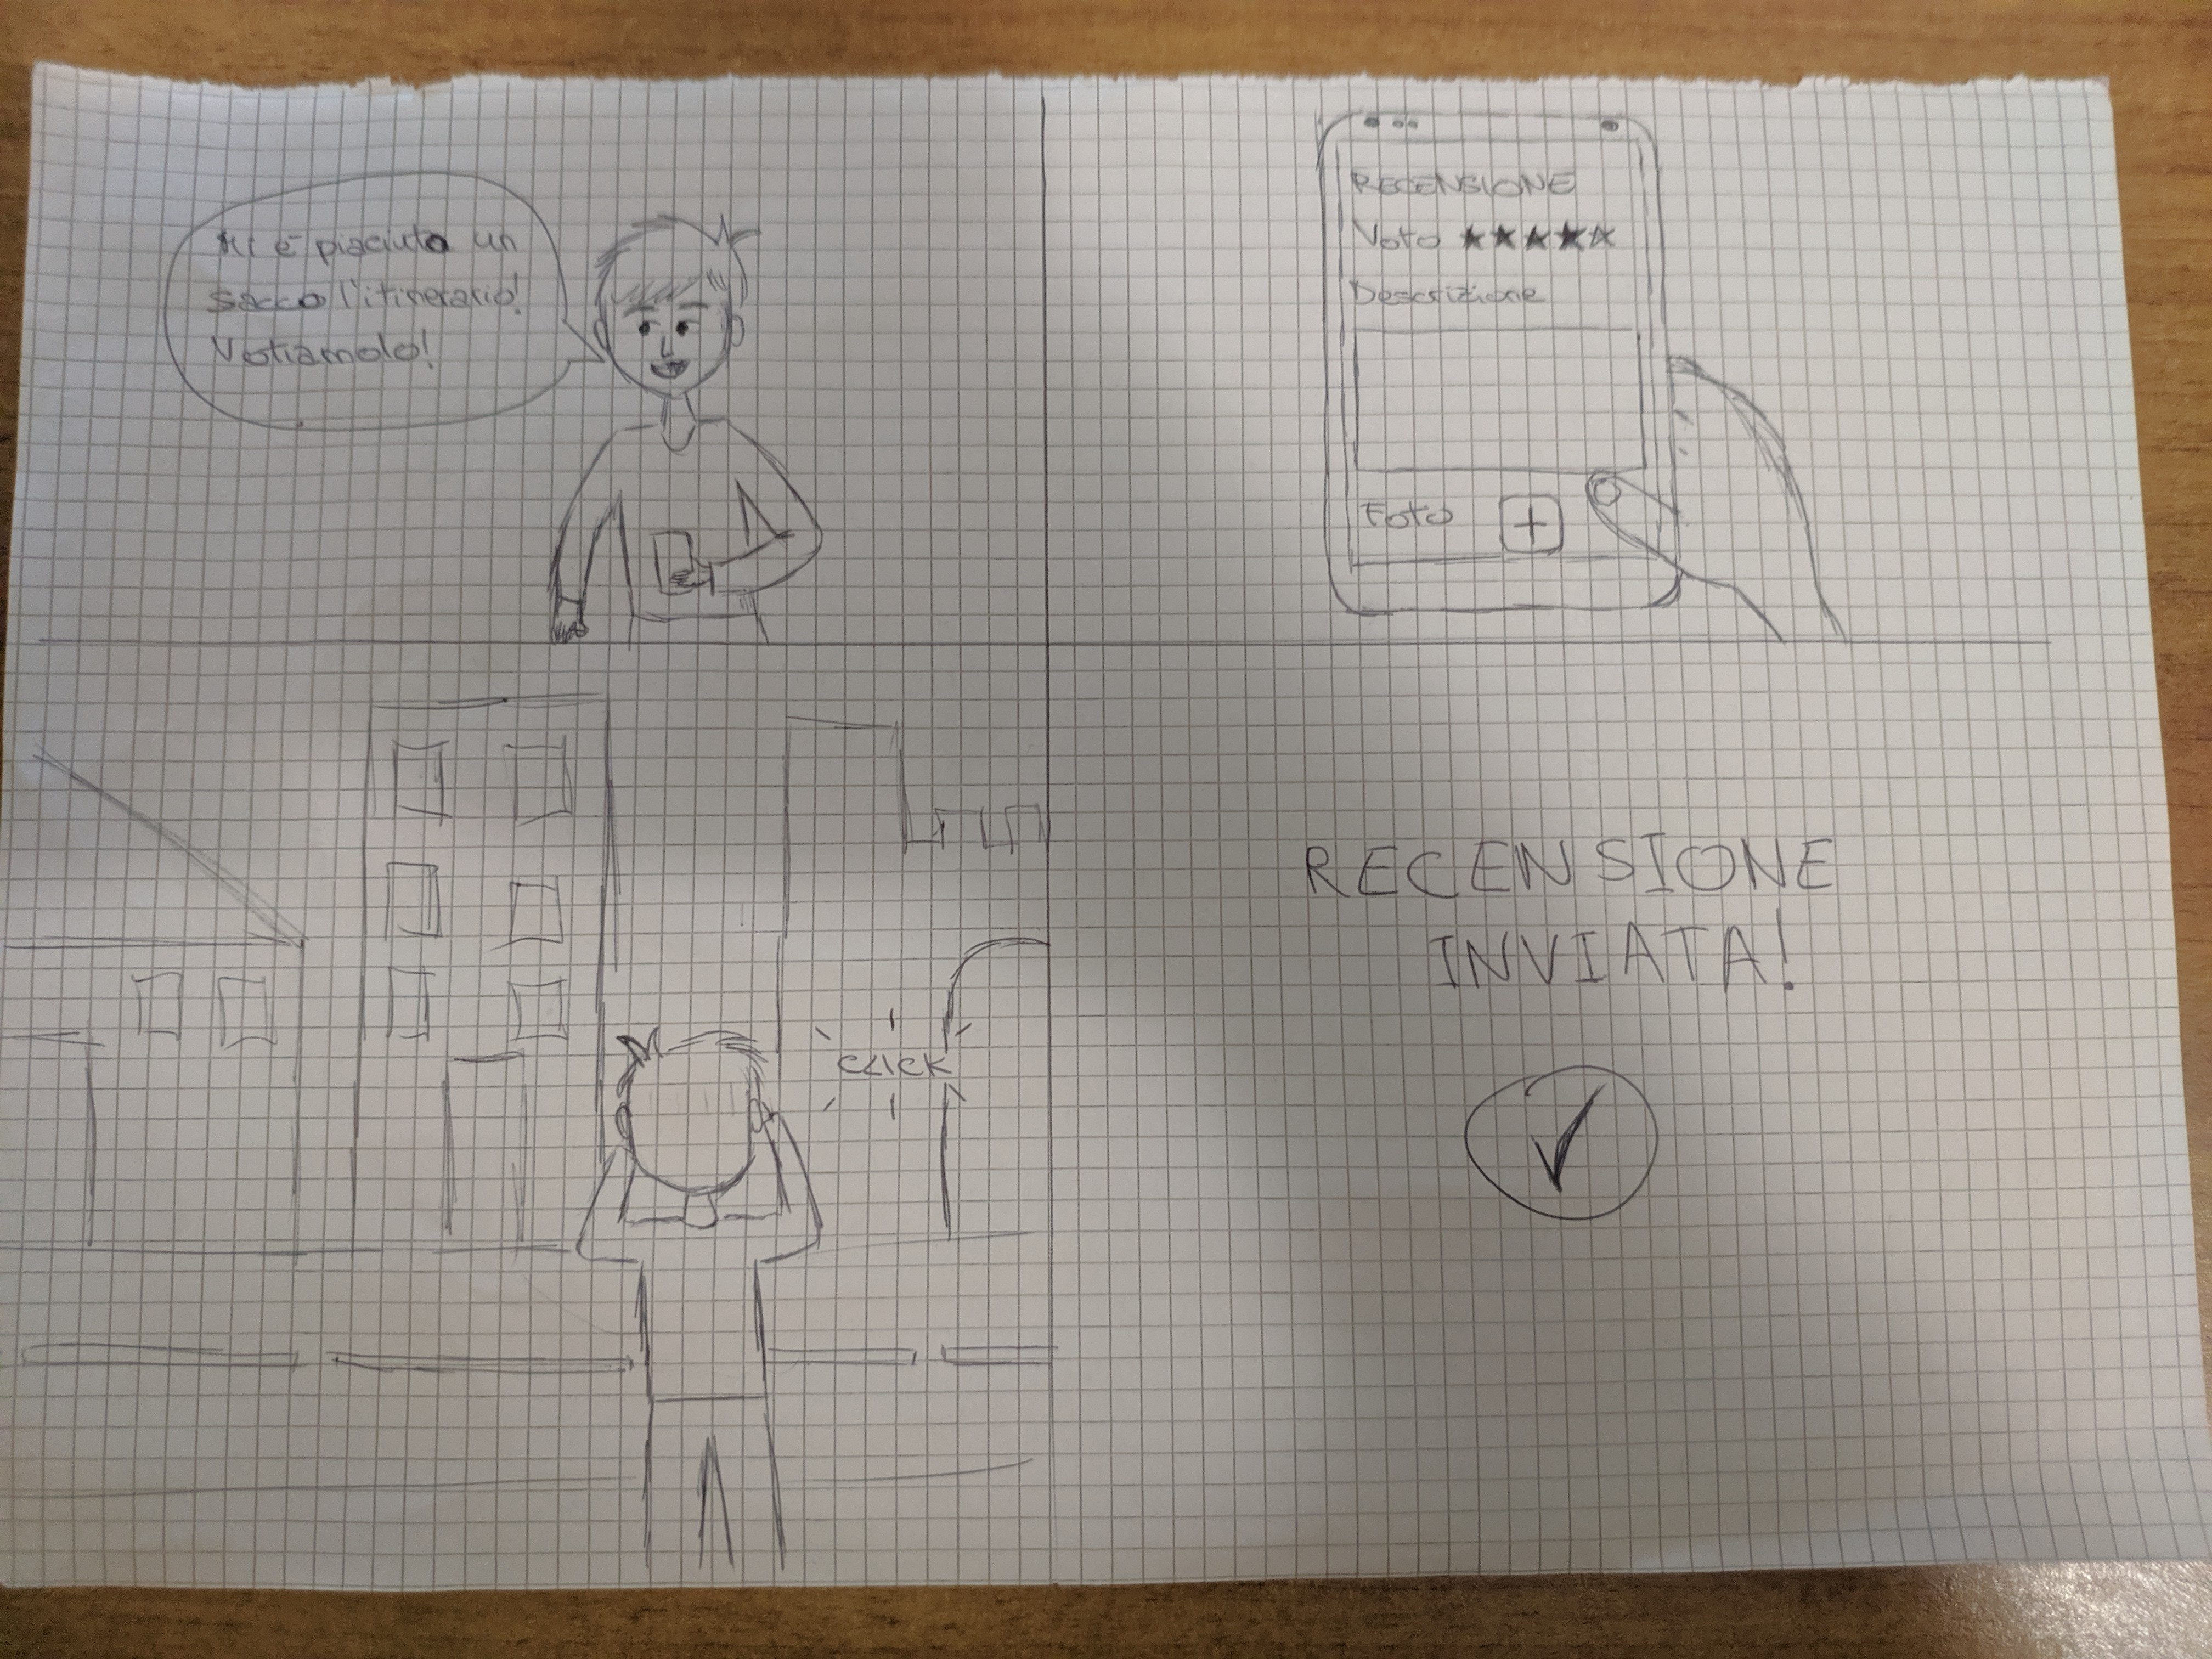 Mi è piaciuto un
sacco l'itinerario!
Votiamolo!
RECENSIONE
Voto ★★★★☆
Descrizione
Foto +
CLICK
RECENSIONE
INVIATA!